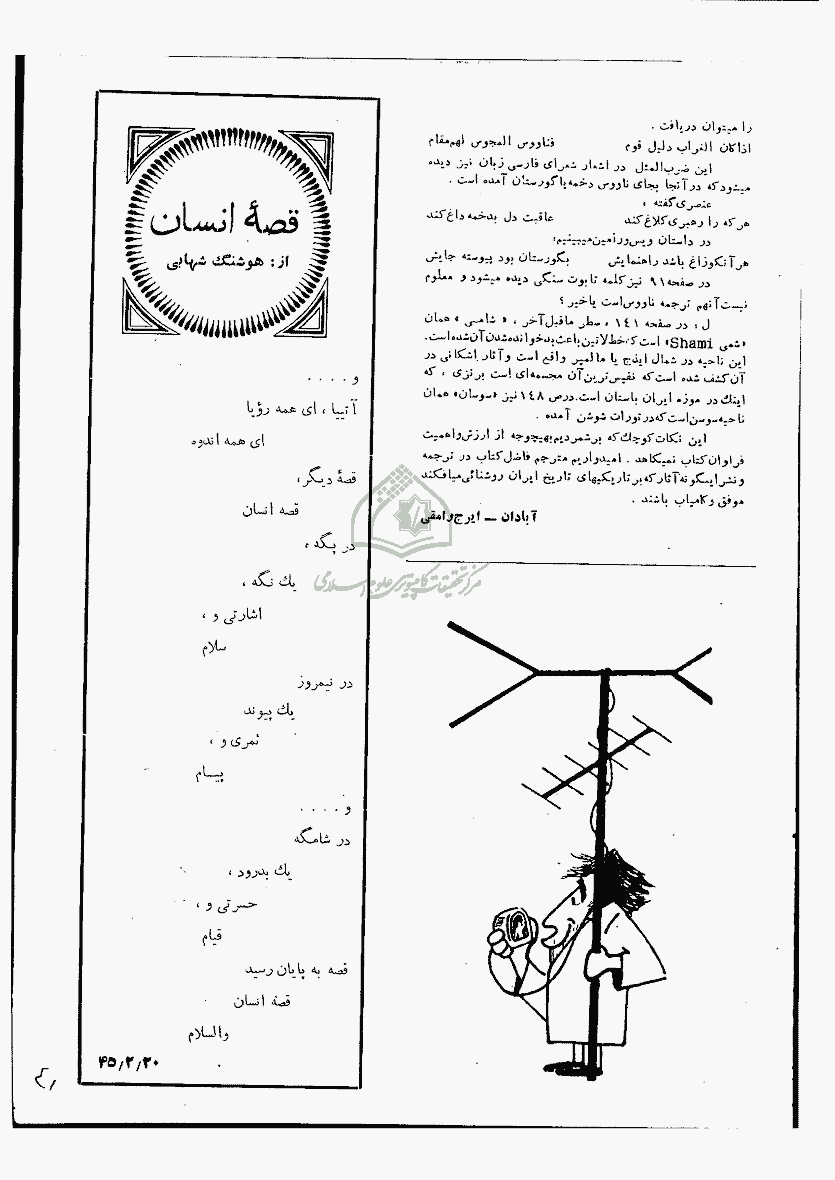 را میتوان دریافت .
اذاکان الغراب دلیل قوم فناووس المجوس لهم مقام
این ضرب‌المثل در اشعار شعرای فارسی زبان نیز دیده
میشود که در آنجا بجای ناووس دخمه یا گورستان آمده است .
عنصری گفته ،
هر که را رهبری کلاغ کند عاقبت دل بدخمه داغ کند
در داستان ویس ورامین میبینیم؛
هر آنکو زاغ باشد راهنمایش بگورستان بود پیوسته جایش
در صفحه ۹۱ نیز کلمه تابوت سنگی دیده میشود و معلوم
نیست آنهم ترجمه ناووس است یا خیر ؟
ل ؛ در صفحه ۱٤۱ ، سطر ماقبل آخر ، « شامی » همان
«شمی Shami» است که خط لاتین باعث بد خوانده شدن آن شده است.
این ناحیه در شمال ایذج یا مالمیر واقع است و آثار اشکانی در
آن کشف شده است که نفیس‌ترین آن مجسمه‌ای است برنزی ، که
اینک در موزه ایران باستان است. درص ۱٤۸ نیز «سوسان» همان
ناحیه سوسن است که در تورات شوشن آمده .
این نکات کوچک که برشمردیم بهیچوجه از ارزش واهمیت
فراوان کتاب نمیکاهد . امیدواریم مترجم فاضل کتاب در ترجمه
و نشر اینگونه آثار که بر تاریکیهای تاریخ ایران روشنائی میافکند
موفق و کامیاب باشند .
آبادان — ایرج وامقی
قصهٔ انسان
از: هوشنگ شهابی
و . . . .
آتییا ، ای همه رؤیا
ای همه اندوه
قصهٔ دیگر،
قصه انسان
در پگه ،
یك نگه ،
اشارتی و ،
سلام
در نیمروز
یك پیوند
ثمری و ،
پیـام
و . . . .
در شامگه
یك بدرود ،
حسرتی و ،
قیام
قصه به پایان رسید
قصهٔ انسان
والسلام
۴۵/۲/۲۰
مرکز تحقیقات کامپیوتری علوم اسلامی